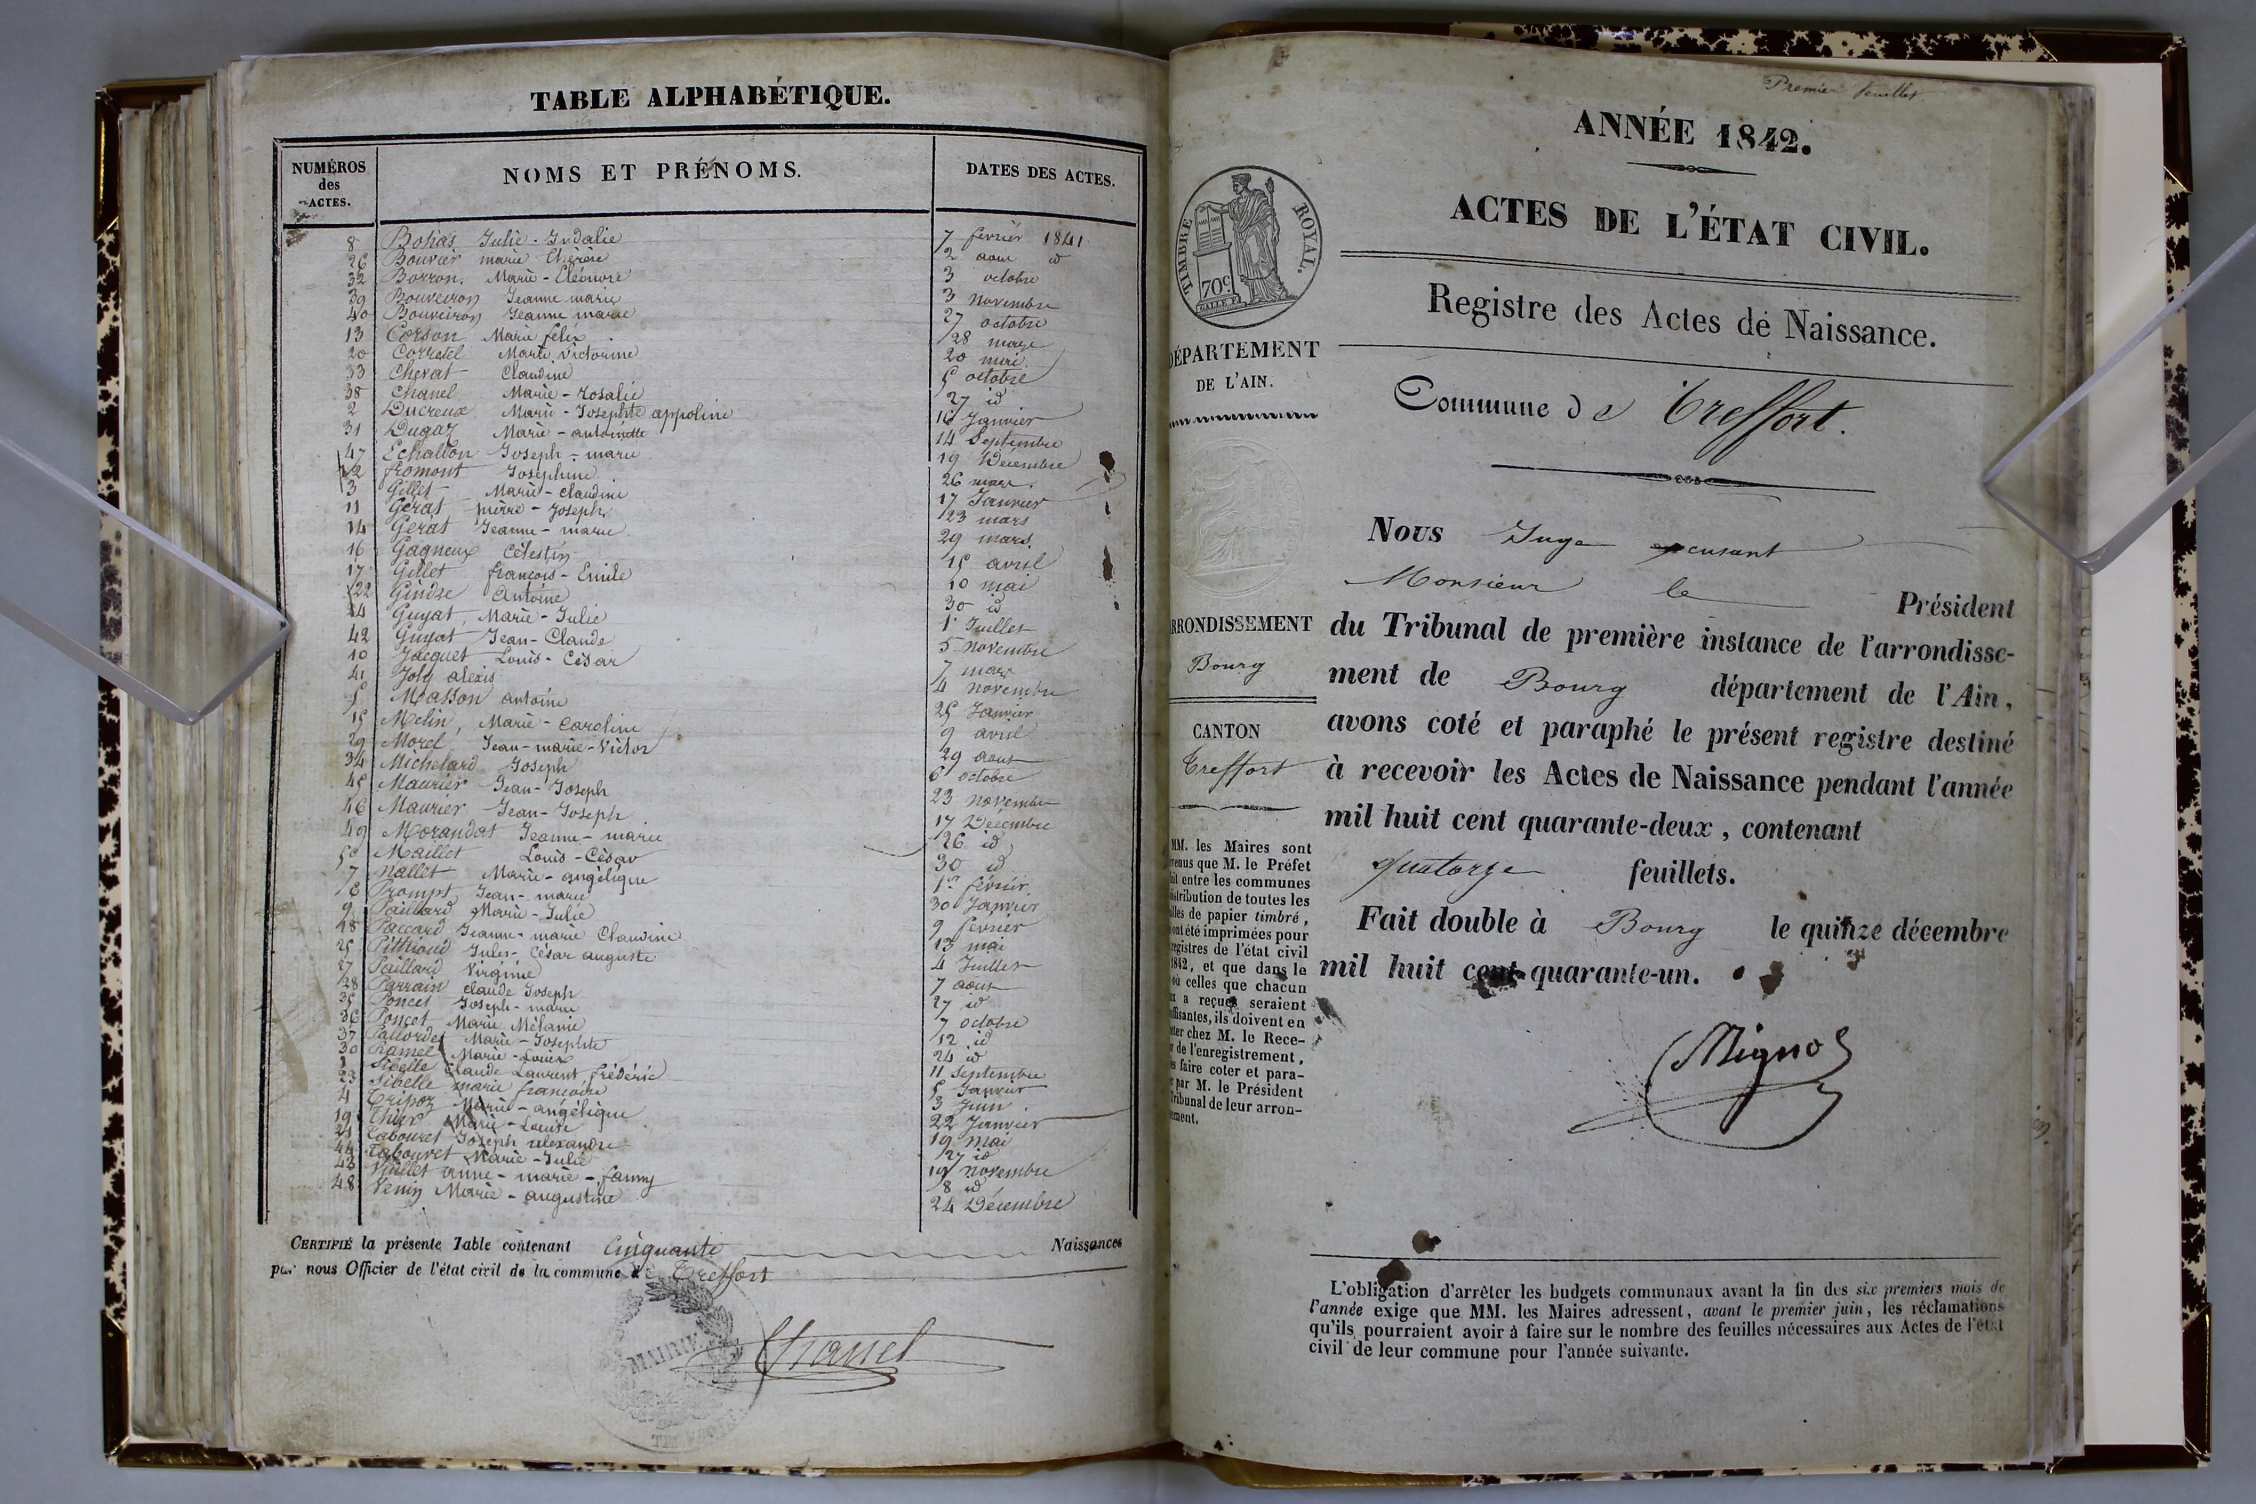 TABLE ALPHABÉTIQUE.
NUMÉROS des ACTES. NOMS ET PRÉNOMS. DATES DES ACTES.
8 Bohas Julie - Indalie 7 février 1841
26 Bouvier marie Thérèse 2 aout id
32 Borron Marie - Eléonore 3 octobre
39 Bouveiron Jeanne marie 3 novembre
40 Bouveiron Jeanne marie 27 octobre
13 Corson Marie felix 28 mars
20 Corretel Marie Victorine 20 mai
33 Chevat Claudine 5 octobre
38 Chanel Marie - Rosalie 27 id
2 Ducreux Marie - Josephte appoline 16 Janvier
31 Dugaz Marie - antoinette 14 Septembre
47 Echallon Joseph - marie 19 Décembre
12 fromont Joséphine 26 mars
3 Gillet Marie - claudine 17 Janvier
11 Gérat pierre - Joseph 23 mars
14 Gerat Jeanne - marie 29 mars
16 Gagneux Célestin 15 avril
17 Gillet francois - Emile 10 mai
22 Gindre Antoine 30 id
24 Guyat Marie - Julie 1er Juillet
42 Guyat Jean - Claude 5 novembre
10 Jacquet Louis - César 7 mars
41 Joly alexis 4 novembre
5 Masson antoine 25 Janvier
15 Melin, Marie - Caroline 9 avril
29 Morel Jean - marie - Victor 29 aout
34 Michelard Joseph 6 octobre
45 Maurier Jean - Joseph 23 novembre
46 Maurier Jean - Joseph 17 Décembre
49 Morandat Jeanne - marie 26 id
50 Maillet Louis - César 30 id
7 Nallet Marie - angélique 1er février
6 Prompt Jean - marie 30 Janvier
9 Paillard Marie - Julie 9 février
18 Paccard Jeanne - marie Claudine 13 mai
25 Pitthioud Jules - César auguste 4 Juillet
27 Paillard Virginie 7 aout
28 Parrain claude Joseph 27 id
35 Poncet Joseph - marie 7 octobre
36 Poncet Marie Mélanie 12 id
37 Marie - Josephte 24 id
30 Ramel Marie - Louise 11 Septembre
1 Sibelle Claude Laurent frédéric 5 Janvier
23 Sibelle marie françoise 3 Juin
4 Tripoz Marie - angélique 22 Janvier
19 Thier Marie - Louise 19 mai
21 Tabouret Joseph alexandre 27 id
44 Tabouret Marie - Julie 19 novembre
43 Vuillet anne - marie - fanny 8 id
48 Venin Marie - augustine 24 Décembre
CERTIFIÉ la présente Table contenant Cinquante Naissances
par nous Officier de l'état civil de la commune de Treffort
MAIRIE
Chanel
Premier feuillet
ANNÉE 1842.
ACTES DE L'ÉTAT CIVIL.
TIMBRE ROYAL.
70c
Registre des Actes de Naissance.
DÉPARTEMENT
DE L'AIN.
Commune de Treffort.
ARRONDISSEMENT
Bourg
CANTON
Treffort
MM. les Maires sont
venus que M. le Préfet
ait entre les communes
distribution de toutes les
lles de papier timbré,
ont été imprimées pour
registres de l'état civil
1842, et que dans le
où celles que chacun
ux a reçues seraient
ffisantes, ils doivent en
eter chez M. le Rece-
r de l'enregistrement,
es faire coter et para-
r par M. le Président
Tribunal de leur arron-
sement.
Nous Juge
Monsieur le Président
du Tribunal de première instance de l'arrondisse-
ment de Bourg département de l'Ain,
avons coté et paraphé le présent registre destiné
à recevoir les Actes de Naissance pendant l'année
mil huit cent quarante-deux, contenant
quatorze feuillets.
Fait double à Bourg le quinze décembre
mil huit cent quarante-un.
L'obligation d'arrêter les budgets communaux avant la fin des six premiers mois de
l'année exige que MM. les Maires adressent, avant le premier juin, les réclamations
qu'ils pourraient avoir à faire sur le nombre des feuilles nécessaires aux Actes de l'état
civil de leur commune pour l'année suivante.